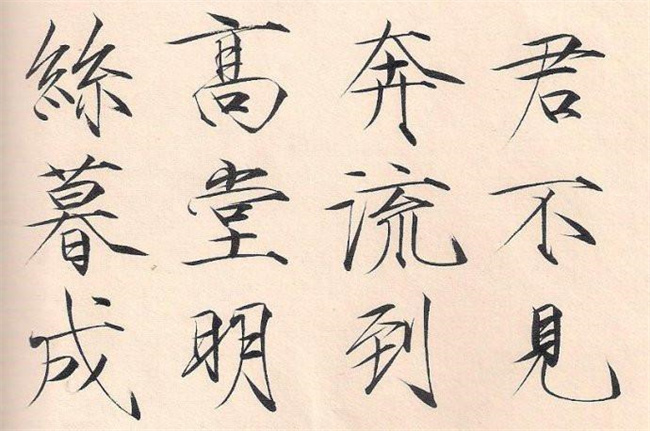 君不見
奔流到
高堂明
絲暮成